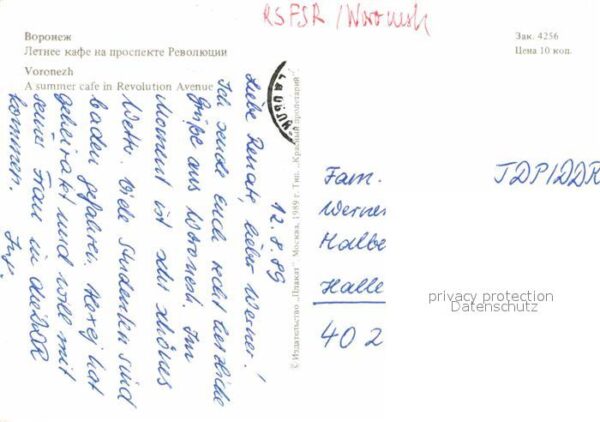 RSFSR / Woronesh
Воронеж
Летнее кафе на проспекте Революции
Voronezh
A summer cafe in Revolution Avenue
Зак. 4256
Цена 10 коп.
12.8.89
Liebe Renate, lieber Werner!
Ich sende Euch recht herzliche
Grüße aus Woronesh. Im
Moment ist sehr schönes
Wetter. Viele Studenten sind
baden gefahren. hat
geheiratet und will mit
seiner Frau in die DDR
kommen.
© Издательство „Плакат". Москва, 1989 г. Тип. „Красный пролетарий".
Fam.
Werner
Halbe
Halle
402
ГДР/DDR
privacy protection
Datenschutz